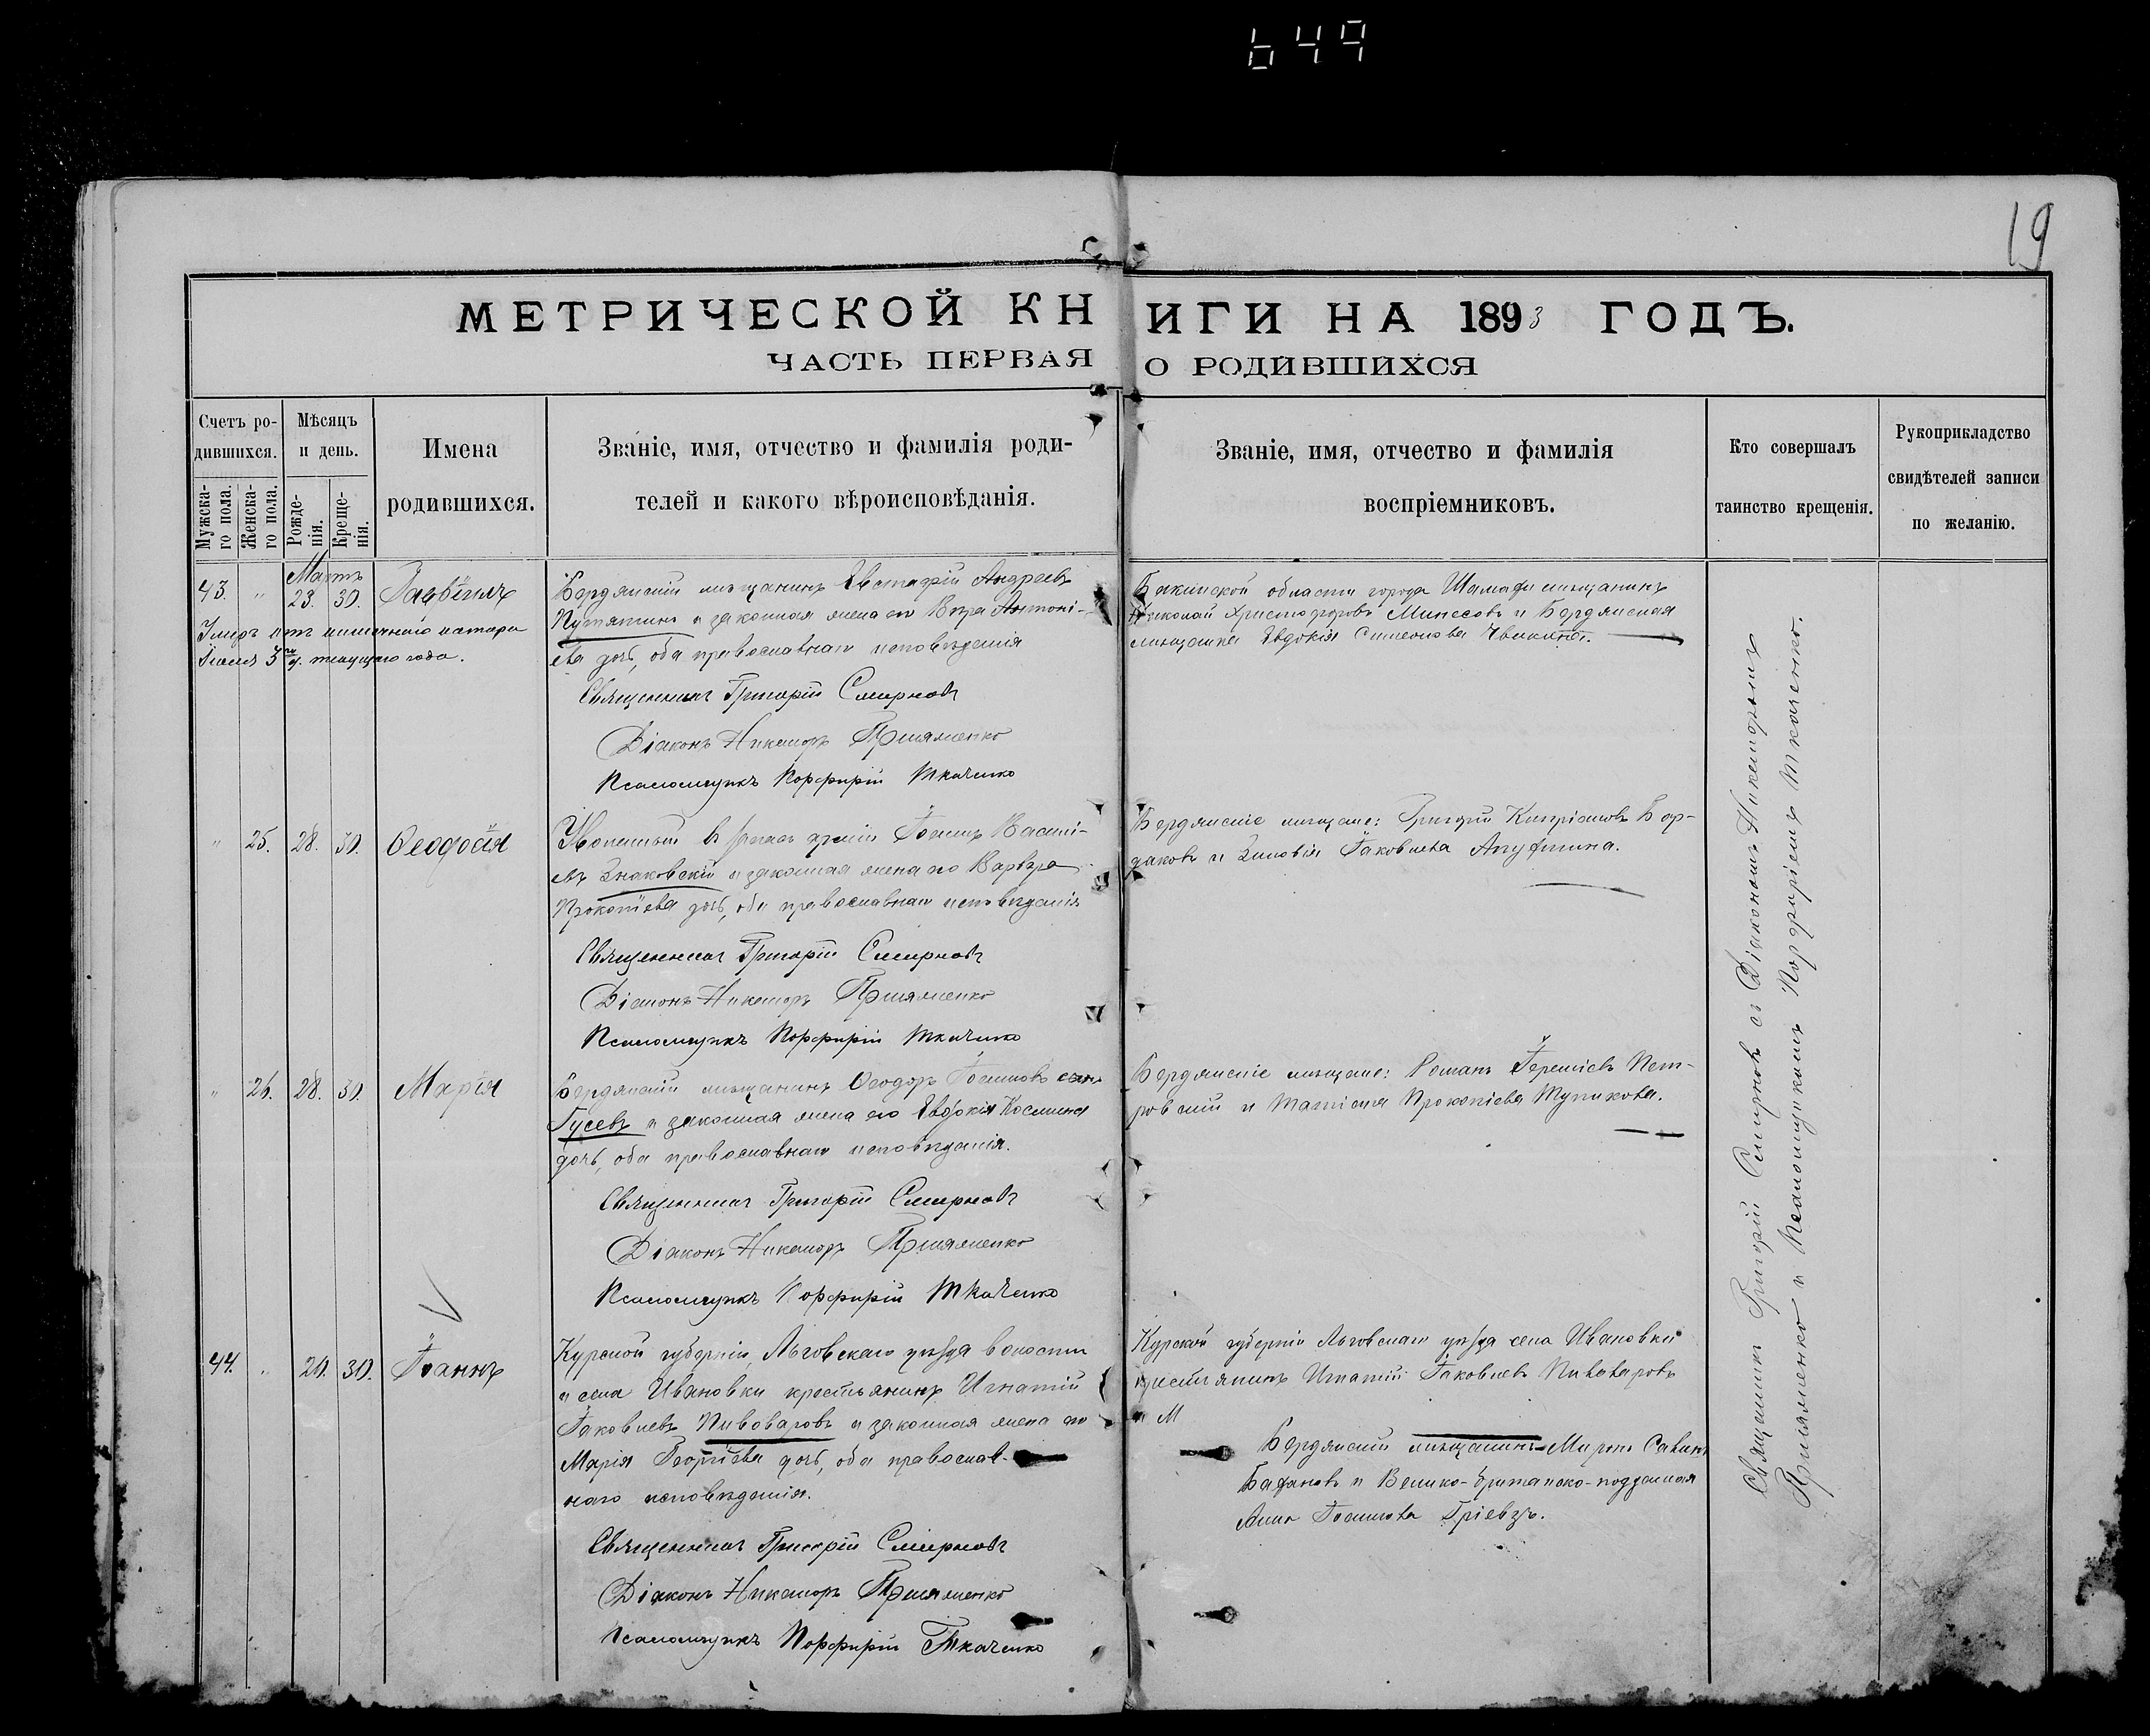 649
19
МЕТРИЧЕСКОЙ КНИГИ НА 1893 ГОДЪ.
ЧАСТЬ ПЕРВАЯ О РОДИВШИХСЯ
Счетъ ро-
дившихся.
Мужска-
го пола.
Женска-
го пола.
Мѣсяцъ
и день.
Рожде-
нія.
Креще-
нія.
Имена
родившихся.
Званіе, имя, отчество и фамилія роди-
телей и какого вѣроисповѣданія.
Званіе, имя, отчество и фамилія
воспріемниковъ.
Кто совершалъ
таинство крещенія.
Рукоприкладство
свидѣтелей записи
по желанію.
Мартъ
43. " 23. 30.
Умеръ отъ
текущаго года.
Бердянскій мѣщанинъ Евстафій Андреевъ
Путятинъ и законная жена его Вѣра Антоні-
ева дочь, оба православнаго исповѣданія
Священникъ Григорій Смирновъ
Діаконъ Никаноръ
Псаломщикъ Порфирій Ткаченко
Бакинской области города Шемахи мѣщанинъ
Николай Христофоровъ Минесовъ и Бердянская
мѣщанка Евдокія Симеонова
" 25. 28. 30. Ѳеодосія
Уволенный въ запасъ арміи Іоаннъ Василі-
евъ Знаковскій и законная жена его Варвара
Прокопіева дочь, оба православнаго исповѣданія
Священникъ Григорій Смирновъ
Діаконъ Никаноръ
Псаломщикъ Порфирій Ткаченко
Бердянскіе мѣщане: Григорій Кипріановъ Бор-
даковъ и Зиновія Іаковлева
" 26. 28. 30. Марія
Бердянскій мѣщанинъ Ѳеодоръ Іоанновъ сынъ
Гусевъ и законная жена его Евдокія Космина
дочь, оба православнаго исповѣданія.
Священникъ Григорій Смирновъ
Діаконъ Никаноръ
Псаломщикъ Порфирій Ткаченко
Бердянскіе мѣщане: Романъ Іереміевъ Пет-
ровскій и Татіана Прокопіева Тупикова.
44. " 20. 30. Іоаннъ
Курской губерніи, Льговскаго уѣзда волости
и села Ивановки крестьянинъ Игнатій
Іаковлевъ Пивоваровъ и законная жена его
Марія Георгіева дочь, оба православ-
наго исповѣданія.
Священникъ Григорій Смирновъ
Діаконъ Никаноръ
Псаломщикъ Порфирій Ткаченко
Курской губерніи Льговскаго уѣзда села Ивановки
крестьянинъ Игнатій Іаковлевъ Пивоваровъ
и М
Бердянскій мѣщанинъ Миронъ Савинъ
и Велико-британско-подданная
Анна Іоаннова Гріевзъ.
Священникъ Григорій Смирновъ съ Діакономъ Никаноромъ
и Псаломщикомъ Порфиріемъ Ткаченко.